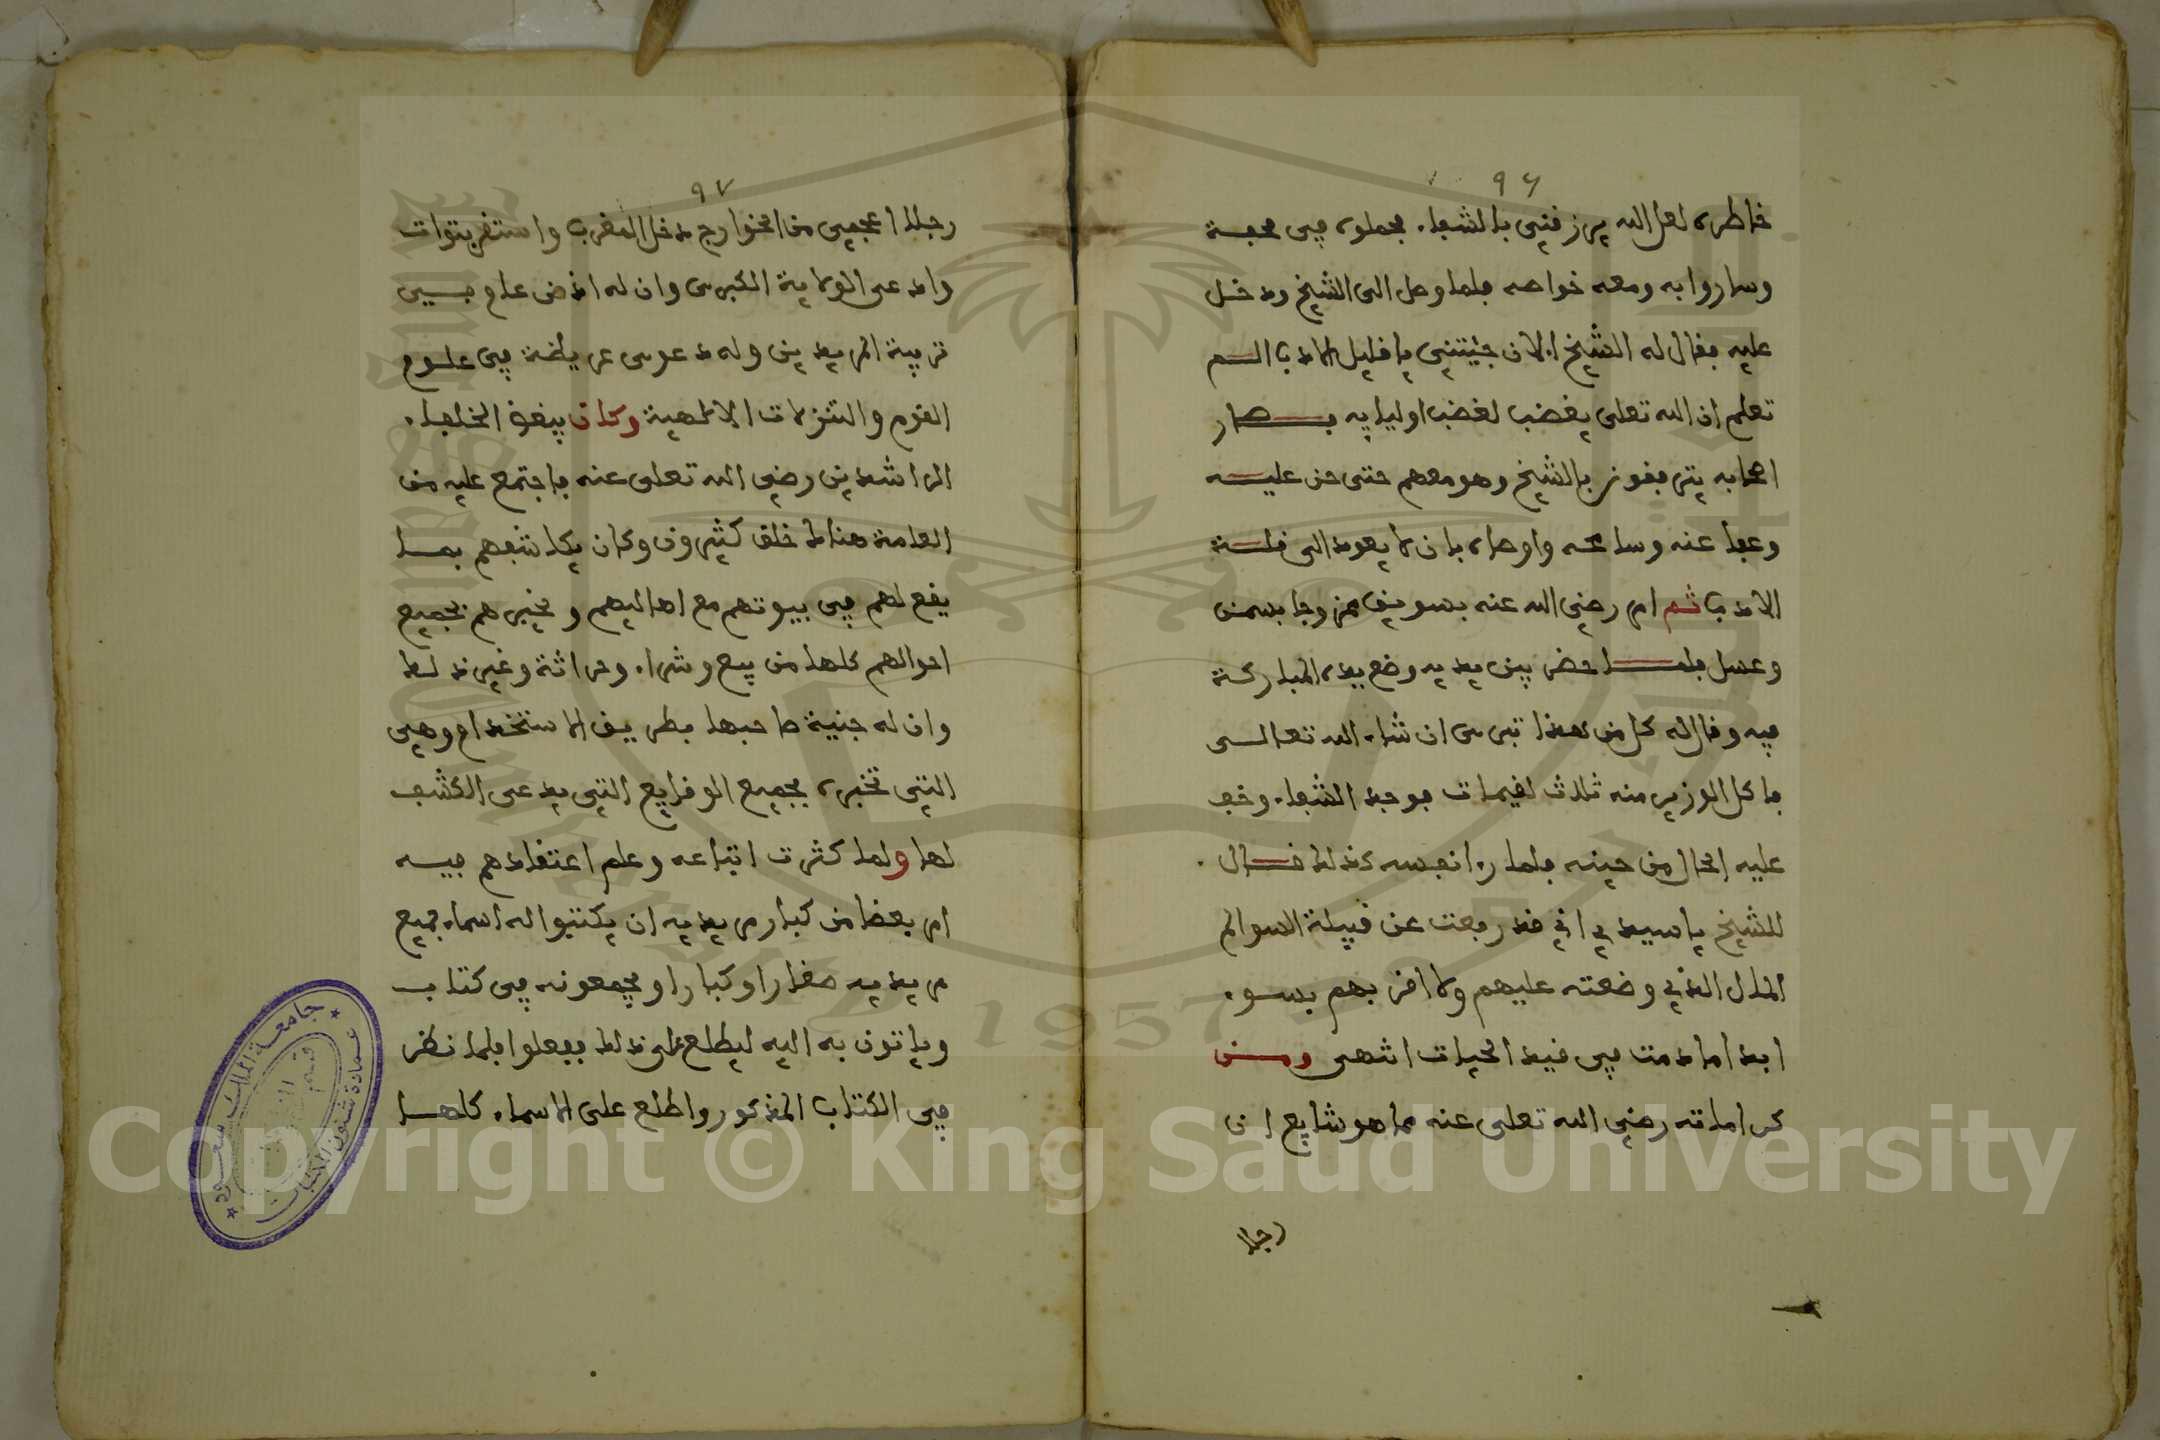 ٩٦
خاطره لعل الله يرزقني بالشفاء فحملوه في محفة
وساروا به ومعه خواصه فلما وصل الى الشيخ ودخل
عليه فقال له الشيخ الان جئتني يا قليل الادب الم
تعلم ان الله تعلى يغضب لغضب اوليايه فصار
اصحابه يترفقون بالشيخ وهو معهم حتى حن عليه
وعفا عنه وسامحه واوصاه بان لا يعود الى قلة
الادب ثم امر رضي الله عنه بسويق ممزوجا بسمن
وعسل فلما حضر بين يديه وضع يده المباركة
فيه وقال له كل من هذا تبرى ان شاء الله تعالى
فاكل الوزير منه ثلاث لقيمات فوجد الشفاء وخف
عليه الحال من حينه فلما راء نفسه كذلك قال
للشيخ يا سيدي اني قد رفعت عن قبيلة السوالم
المال الذي وضعته عليهم ولا اضر بهم بسوء
ابدا ما دمت في قيد الحيات انتهى ومن
كراماته رضي الله تعلى عنه مما هو شايع ان
رجلا
٩٧
رجلا اعجمي من الخوارج دخل المغرب واستقر بتوات
وادعى الولاية الكبرى وان له اذن عام في
تربية المريدين وله دعوى عريضة في علوم
القوم والتنزلات الالهية وكان يبغض الخلفاء
الراشدين رضي الله تعلى عنه فاجتمع عليه من
العامة هناك خلق كثيرون وكان يكاشفهم بما
يقع لهم في بيوتهم مع اهاليهم ويخبرهم بجميع
احوالهم كلها من بيع وشراء وحراثة وغير ذلك
وان له جنية صاحبها بطريق الاستخدام وهي
التي تخبره بجميع الوقايع التي يدعى الكشف
لها ولما كثرت اتباعه وعلم اعتقادهم فيه
امر بعضا من كبار مريديه ان يكتبوا له اسماء جميع
مريديه صغارا وكبارا ويجمعونه في كتاب
وياتون به اليه ليطلع على ذلك ففعلوا فلما نظر
في الكتاب المذكور واطلع على الاسماء كلها
جامعة الملك سعود
عمادة شئون المكتبات
Copyright © King Saud University
1957